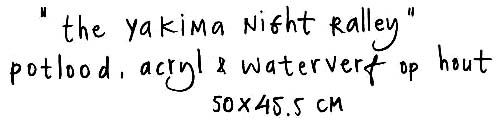 "the Yakima Night Ralley"
potlood, acryl & waterverf op hout
50x45.5 cm